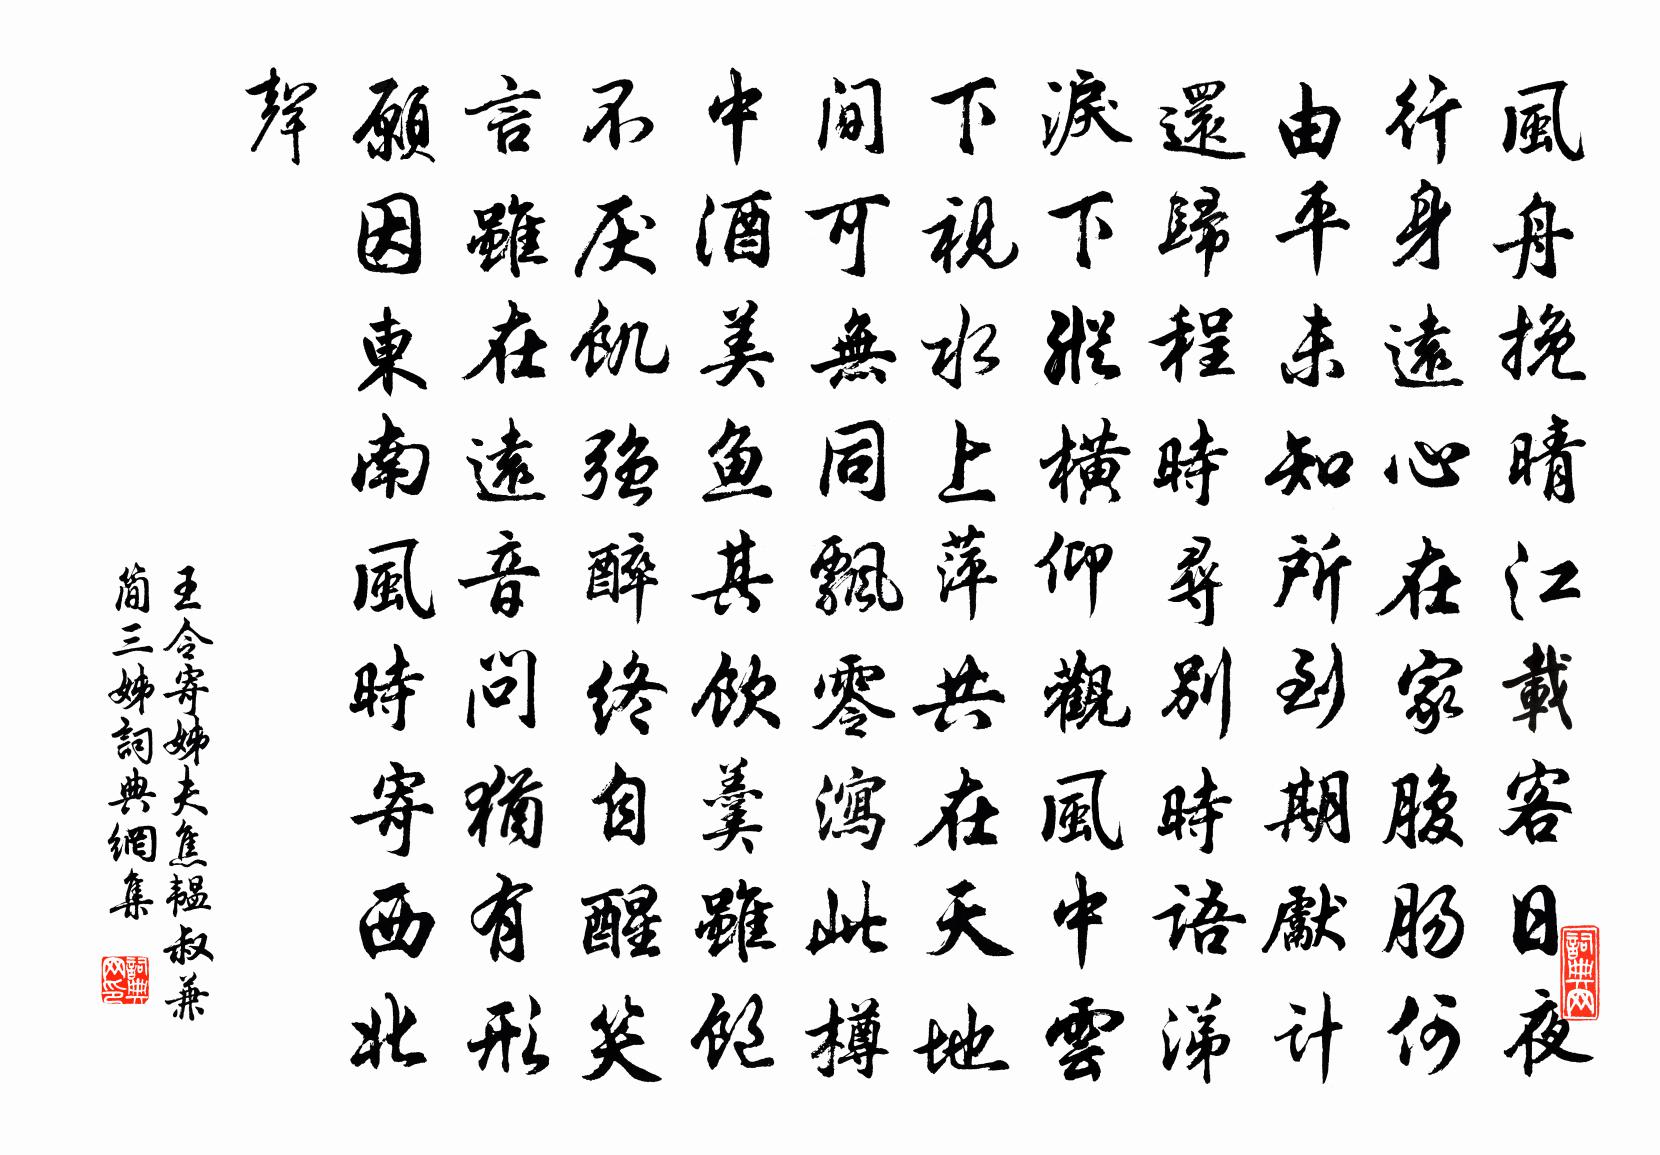 風舟挽晴江載客日夜
行身遠心在家腹腸何
由平未知所到期獻計
還歸程時尋別時語涕
淚下縱橫仰觀風中雲
下視水上萍共在天地
間可無同飄零瀉此樽
中酒美魚其飲羹雖飽
不厌飢強醉終自醒笑
言雖在遠音問猶有形
願因東南風時寄西北
聲
王令寄姊夫焦韞叔兼
簡三姊詞典網集
詞典网
詞典网印